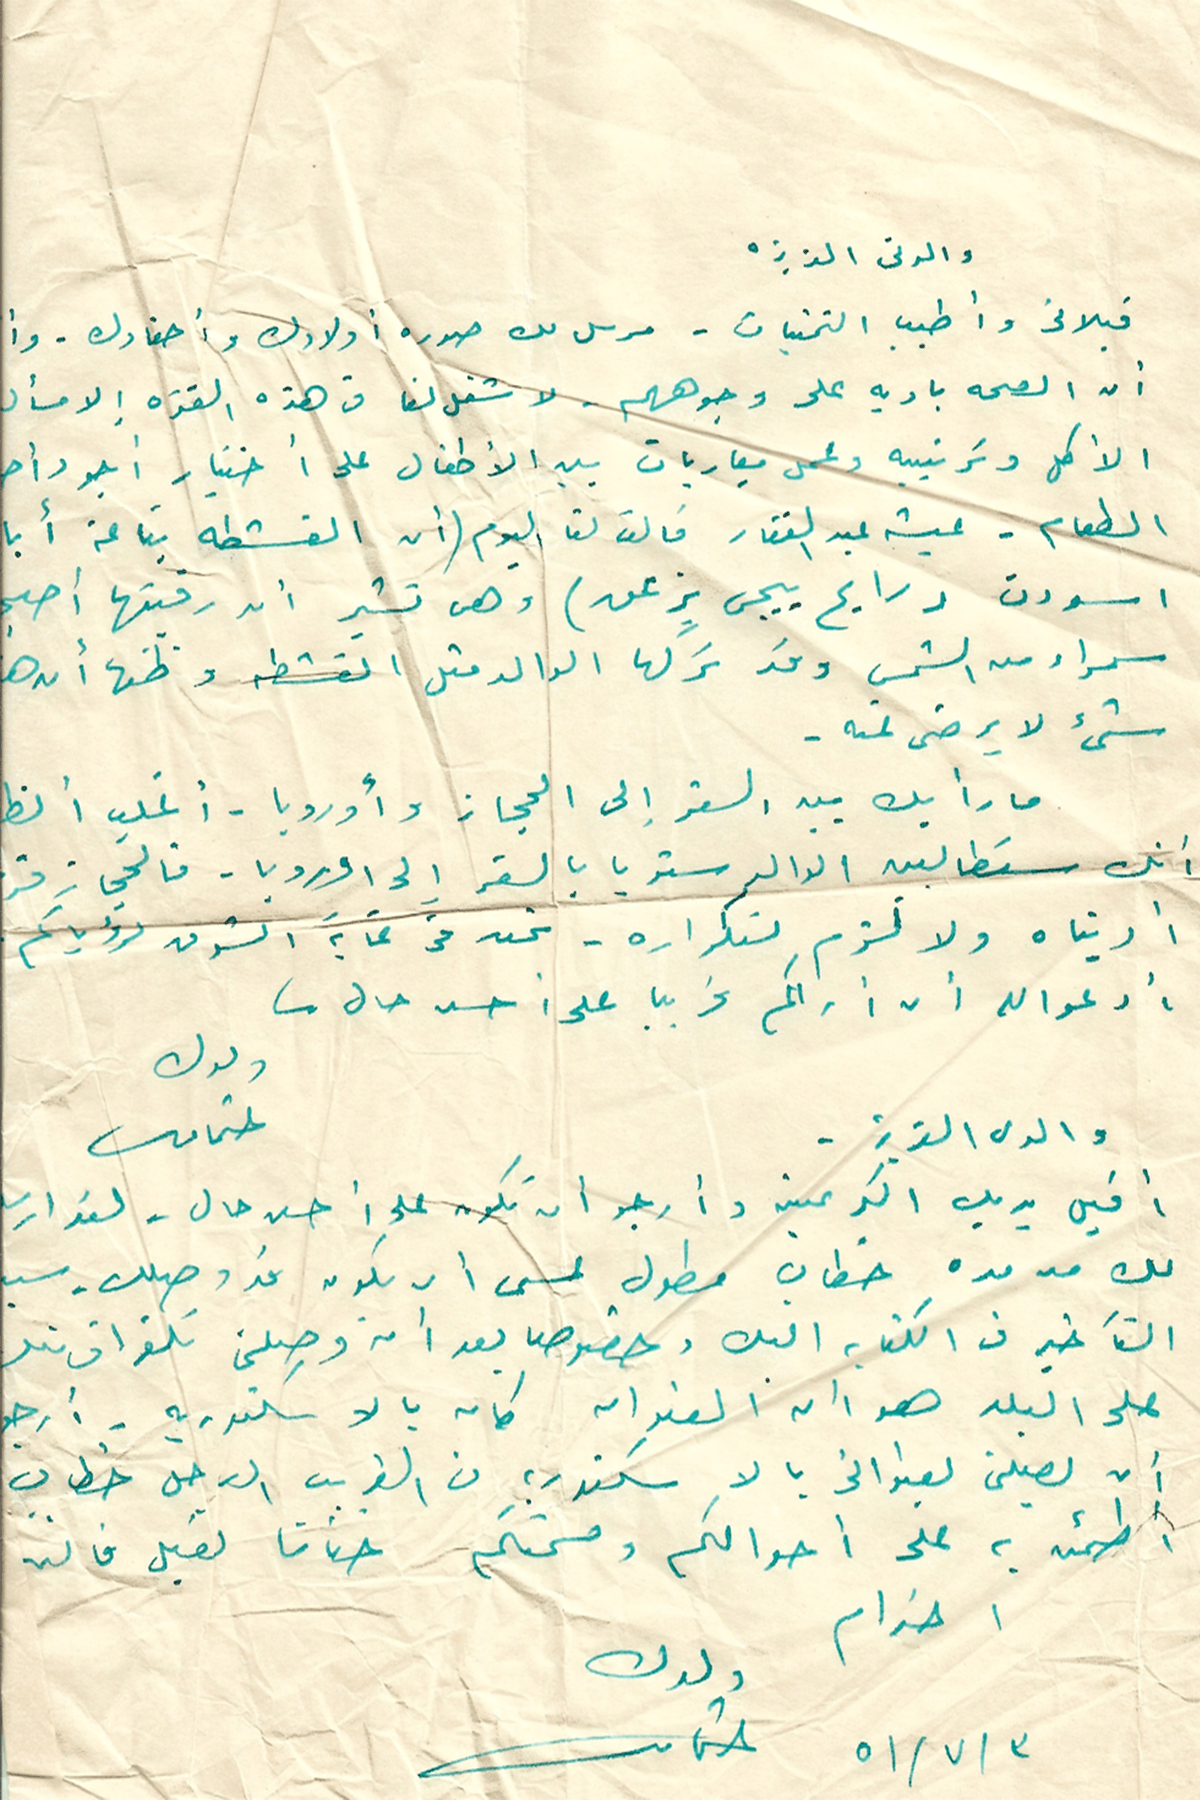 والدتى العزيزه
قبلاتى وأطيب التمنيات - مرسل لك صورة أولادك وأحفادك - وأ
أن الصحه باديه على وجوههم - لا شغل لنا فى هذه الفتره إلا مسأل
الأكل وترتيبه وعمل مباريات بين الأطفال على أختيار أجود أص
الطعام - عيشه عبد الغفار قالت لنا اليوم (أن القشطه بتاعة أبا
اسودت ورايح ييجى يزعق) وهى تشير أن رقبتها أصبح
سمراء من الشمس وقد تركها الوالد مثل القشطه وظنها أن هذ
شئ لا يرضى عنه -
مارأيك بين السفر إلى الحجاز وأوروبا - أغلب الظ
أنك ستطالبين الوالد سنويا بالسفر إلى اوروبا - فالحجاز فرض
أديناه ولا لزوم لتكراره - نحن فى غاية الشوق لرؤياكم
أدعو الله أن أراكم قريبا على أحسن حال
ولدك
عثمان
والدى العزيز -
أقبل يديك الكريمتين وأرجو أن تكون على أحسن حال - لقد ارسل
لك من مده خطاب مطول عسى أن يكون قد وصلك - سب
التأخير فى الكتابه اليك وخصوصا بعد أن وصلنى تلغرافى
على البلد هو ان العنوان كان بالاسكندريه - أرجو
أن يصلنى بعنوانى بالاسكندريه فى القريب العاجل خطاب
أطمئن به على أحوالكم وصحتكم ختاما تقبل فائق
احترام
ولدك
عثمان
٣/٧/٥١